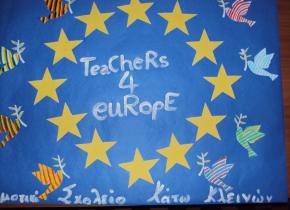 TeaCheRs
4
euRopE
μοτικό Σχολείο Κάτω Κλεινών